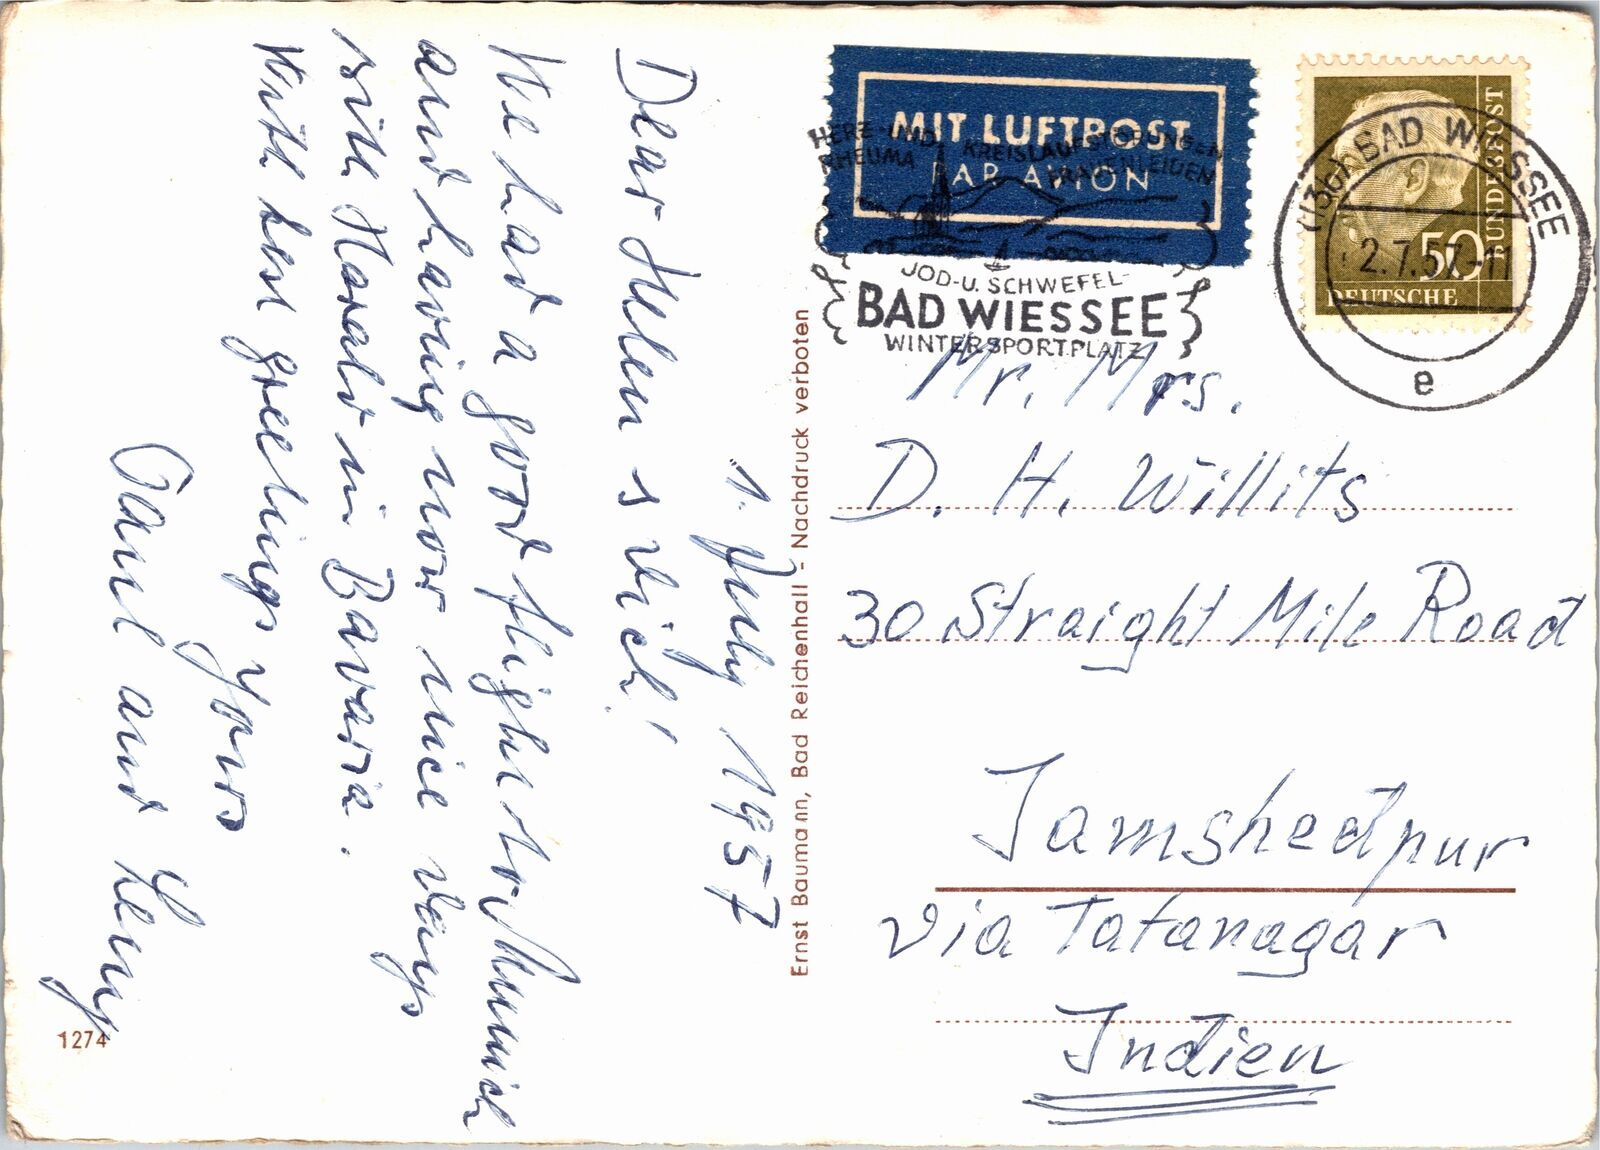 1. July 1957
Dear Helen & Dich!
We had a good flight to Munich
and having now nice days
with Harald in Bavaria.
With best greetings Yours
and
1274
Ernst Baumann, Bad Reichenhall - Nachdruck verboten
MIT LUFTPOST
PAR AVION
HERZ- UND KREISLAUFSTÖRUNGEN
RHEUMA FRAUENLEIDEN
JOD- U. SCHWEFEL-
BAD WIESSEE
WINTERSPORTPLATZ
(13b) BAD WIESSEE
2.7.57-11
e
50
DEUTSCHE
BUNDESPOST
Mr. Mrs.
D. H. Willits
30 Straight Mile Road
Jamshedpur
via Tatanagar
Indien